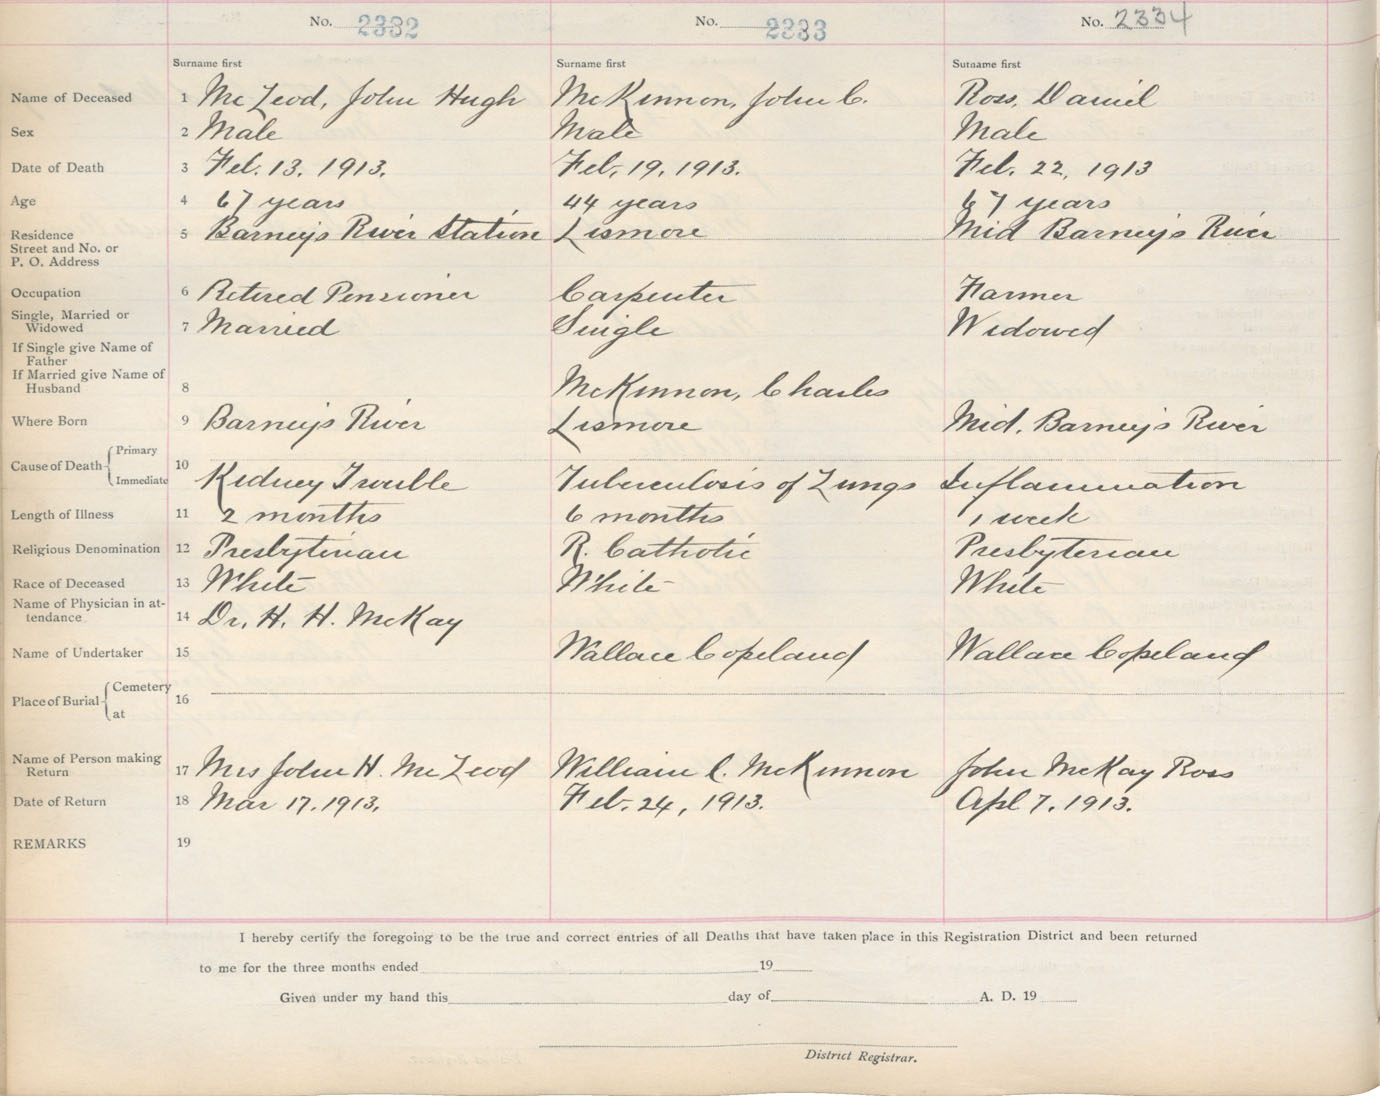 No. 2332 No. 2333 No. 2334
Surname first Surname first Surname first
Name of Deceased 1 McLeod, John Hugh McKinnon, John C. Ross, Daniel
Sex 2 Male Male Male
Date of Death 3 Feb. 13, 1913. Feb. 19, 1913. Feb. 22, 1913
Age 4 67 years 44 years 67 years
Residence 5 Barney's River Station Lismore Mid Barney's River
Street and No. or
P. O. Address
Occupation 6 Retired Pensioner Carpenter Farmer
Single, Married or
Widowed 7 Married Single Widowed
If Single give Name of
Father
If Married give Name of
Husband 8 McKinnon, Charles
Where Born 9 Barney's River Lismore Mid. Barney's River
Primary
Cause of Death 10
Immediate Kidney Trouble Tuberculosis of Lungs Inflammation
Length of Illness 11 2 months 6 months 1 week
Religious Denomination 12 Presbyterian R. Catholic Presbyterian
Race of Deceased 13 White White White
Name of Physician in at-
tendance 14 Dr. H. H. McKay
Name of Undertaker 15 Wallace Copeland Wallace Copeland
Cemetery
Place of Burial 16
at
Name of Person making
Return 17 Mrs John H. McLeod William C. McKinnon John McKay Ross
Date of Return 18 Mar 17, 1913. Feb. 24, 1913. Apl 7, 1913.
REMARKS 19
I hereby certify the foregoing to be the true and correct entries of all Deaths that have taken place in this Registration District and been returned
to me for the three months ended 19
Given under my hand this day of A. D. 19
District Registrar.